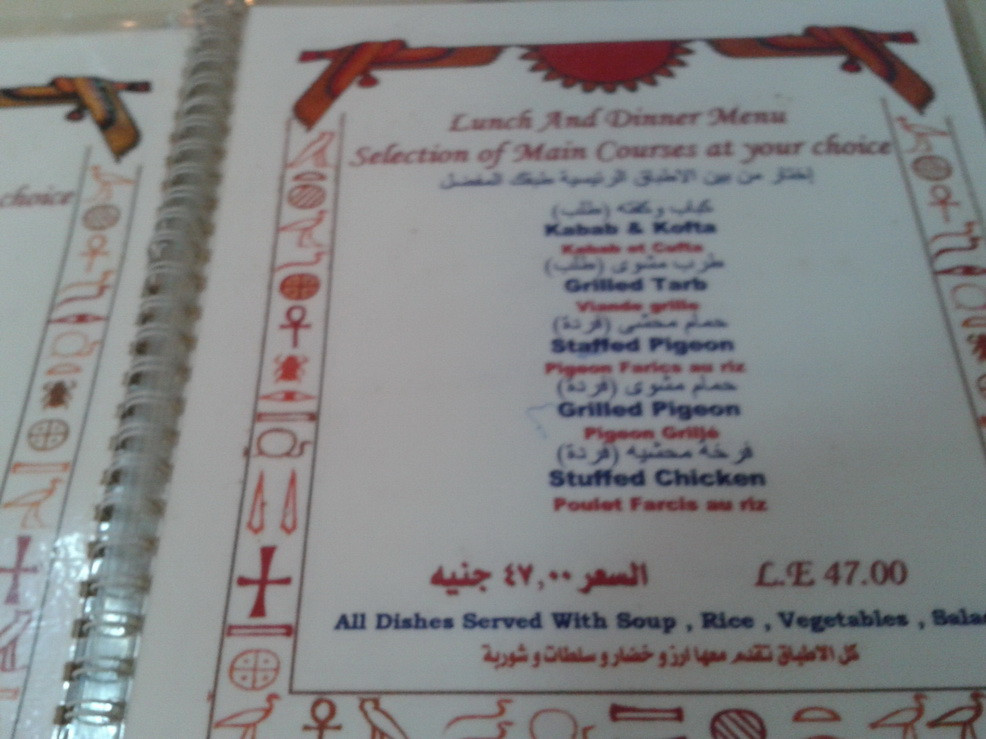 choice
Lunch And Dinner Menu
Selection of Main Courses at your choice
إختار من بين الاطباق الرئيسية طبقك المفضل
كباب وكفته (طلب)
Kabab & Kofta
Kabab et Cufta
طرب مشوى (طلب)
Grilled Tarb
Viande grille
حمام محشى (فردة)
Staffed Pigeon
Pigeon Farics au riz
حمام مشوى (فردة)
Grilled Pigeon
Pigeon Grillé
فرخة محشيه (فردة)
Stuffed Chicken
Poulet Farcis au riz
السعر ٤٧,٠٠ جنيه L.E 47.00
All Dishes Served With Soup , Rice , Vegetables , Sala
كل الاطباق تقدم معها ارز و خضار و سلطات و شوربة